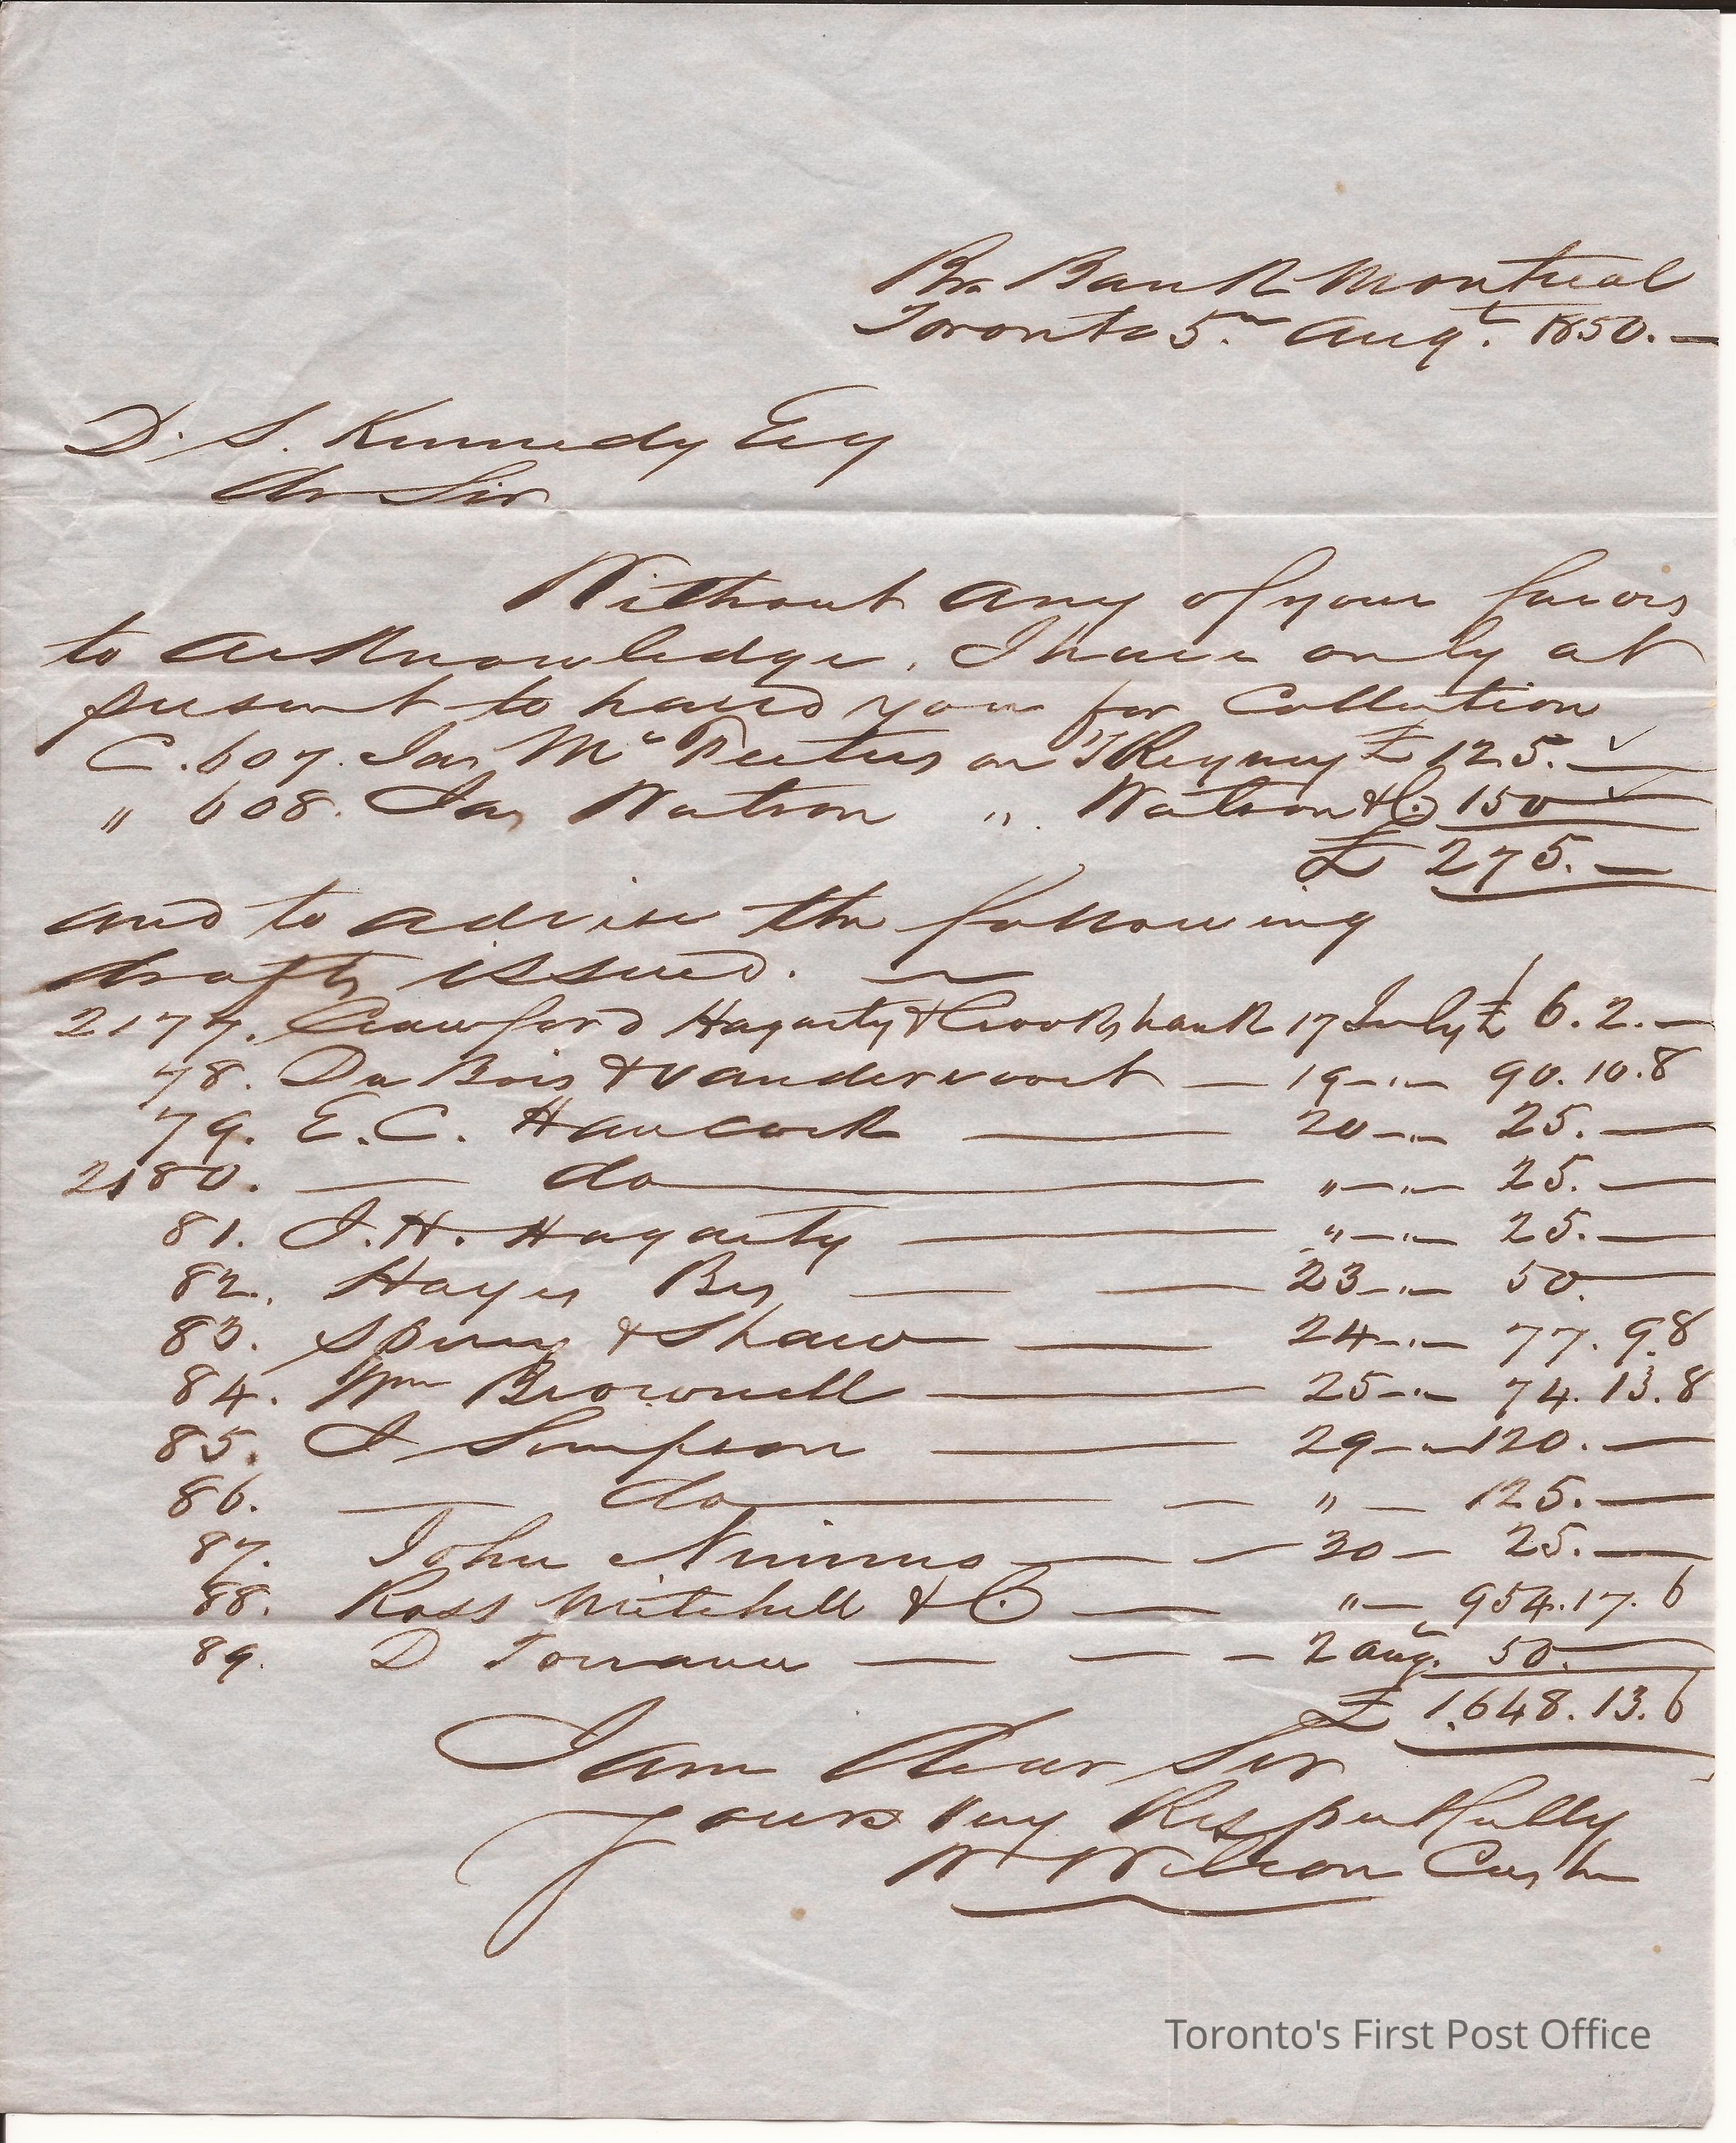 Br Bank Montreal
Toronto 5th Augt. 1850. —
D. S. Kennedy Esq
Dr Sir
Without any of your favors
to acknowledge. I have only at
present to hand you for Collection
C. 607. Jas Mc Feeters on T Rigney £ 125. —
" 608. Jas Watson " Watson & Co 150 —
£ 275. —
and to advise the following
drafts issued. —
2177. Crawford Hagarty & Crookshank 17 July £ 6. 2. —
78. Du Bois & Vandervoort — 19 — " — 90. 10. 8
79. E. C. Hancock — 20 — " — 25. —
2180. — do — " — " — 25. —
81. J. H. Hagarty — " — " — 25. —
82. Hayes Brs — — 23 — " — 50. —
83. & Shaw — 24 — " — 77. 9. 8
84. Wm Brownell — 25 — " — 74. 13. 8
85. J Simpson — 29 — " — 120. —
86. — do — — " — 125. —
87. John Nimmo — — 30 — 25. —
88. Ross Mitchell & Co — " — 954. 17. 6
89. D Torrance — — — 2 Augt. 50. —
£ 1.648. 13. 6
I am Dear Sir
yours Very Respectfully
W Wilson Cashr
Toronto's First Post Office